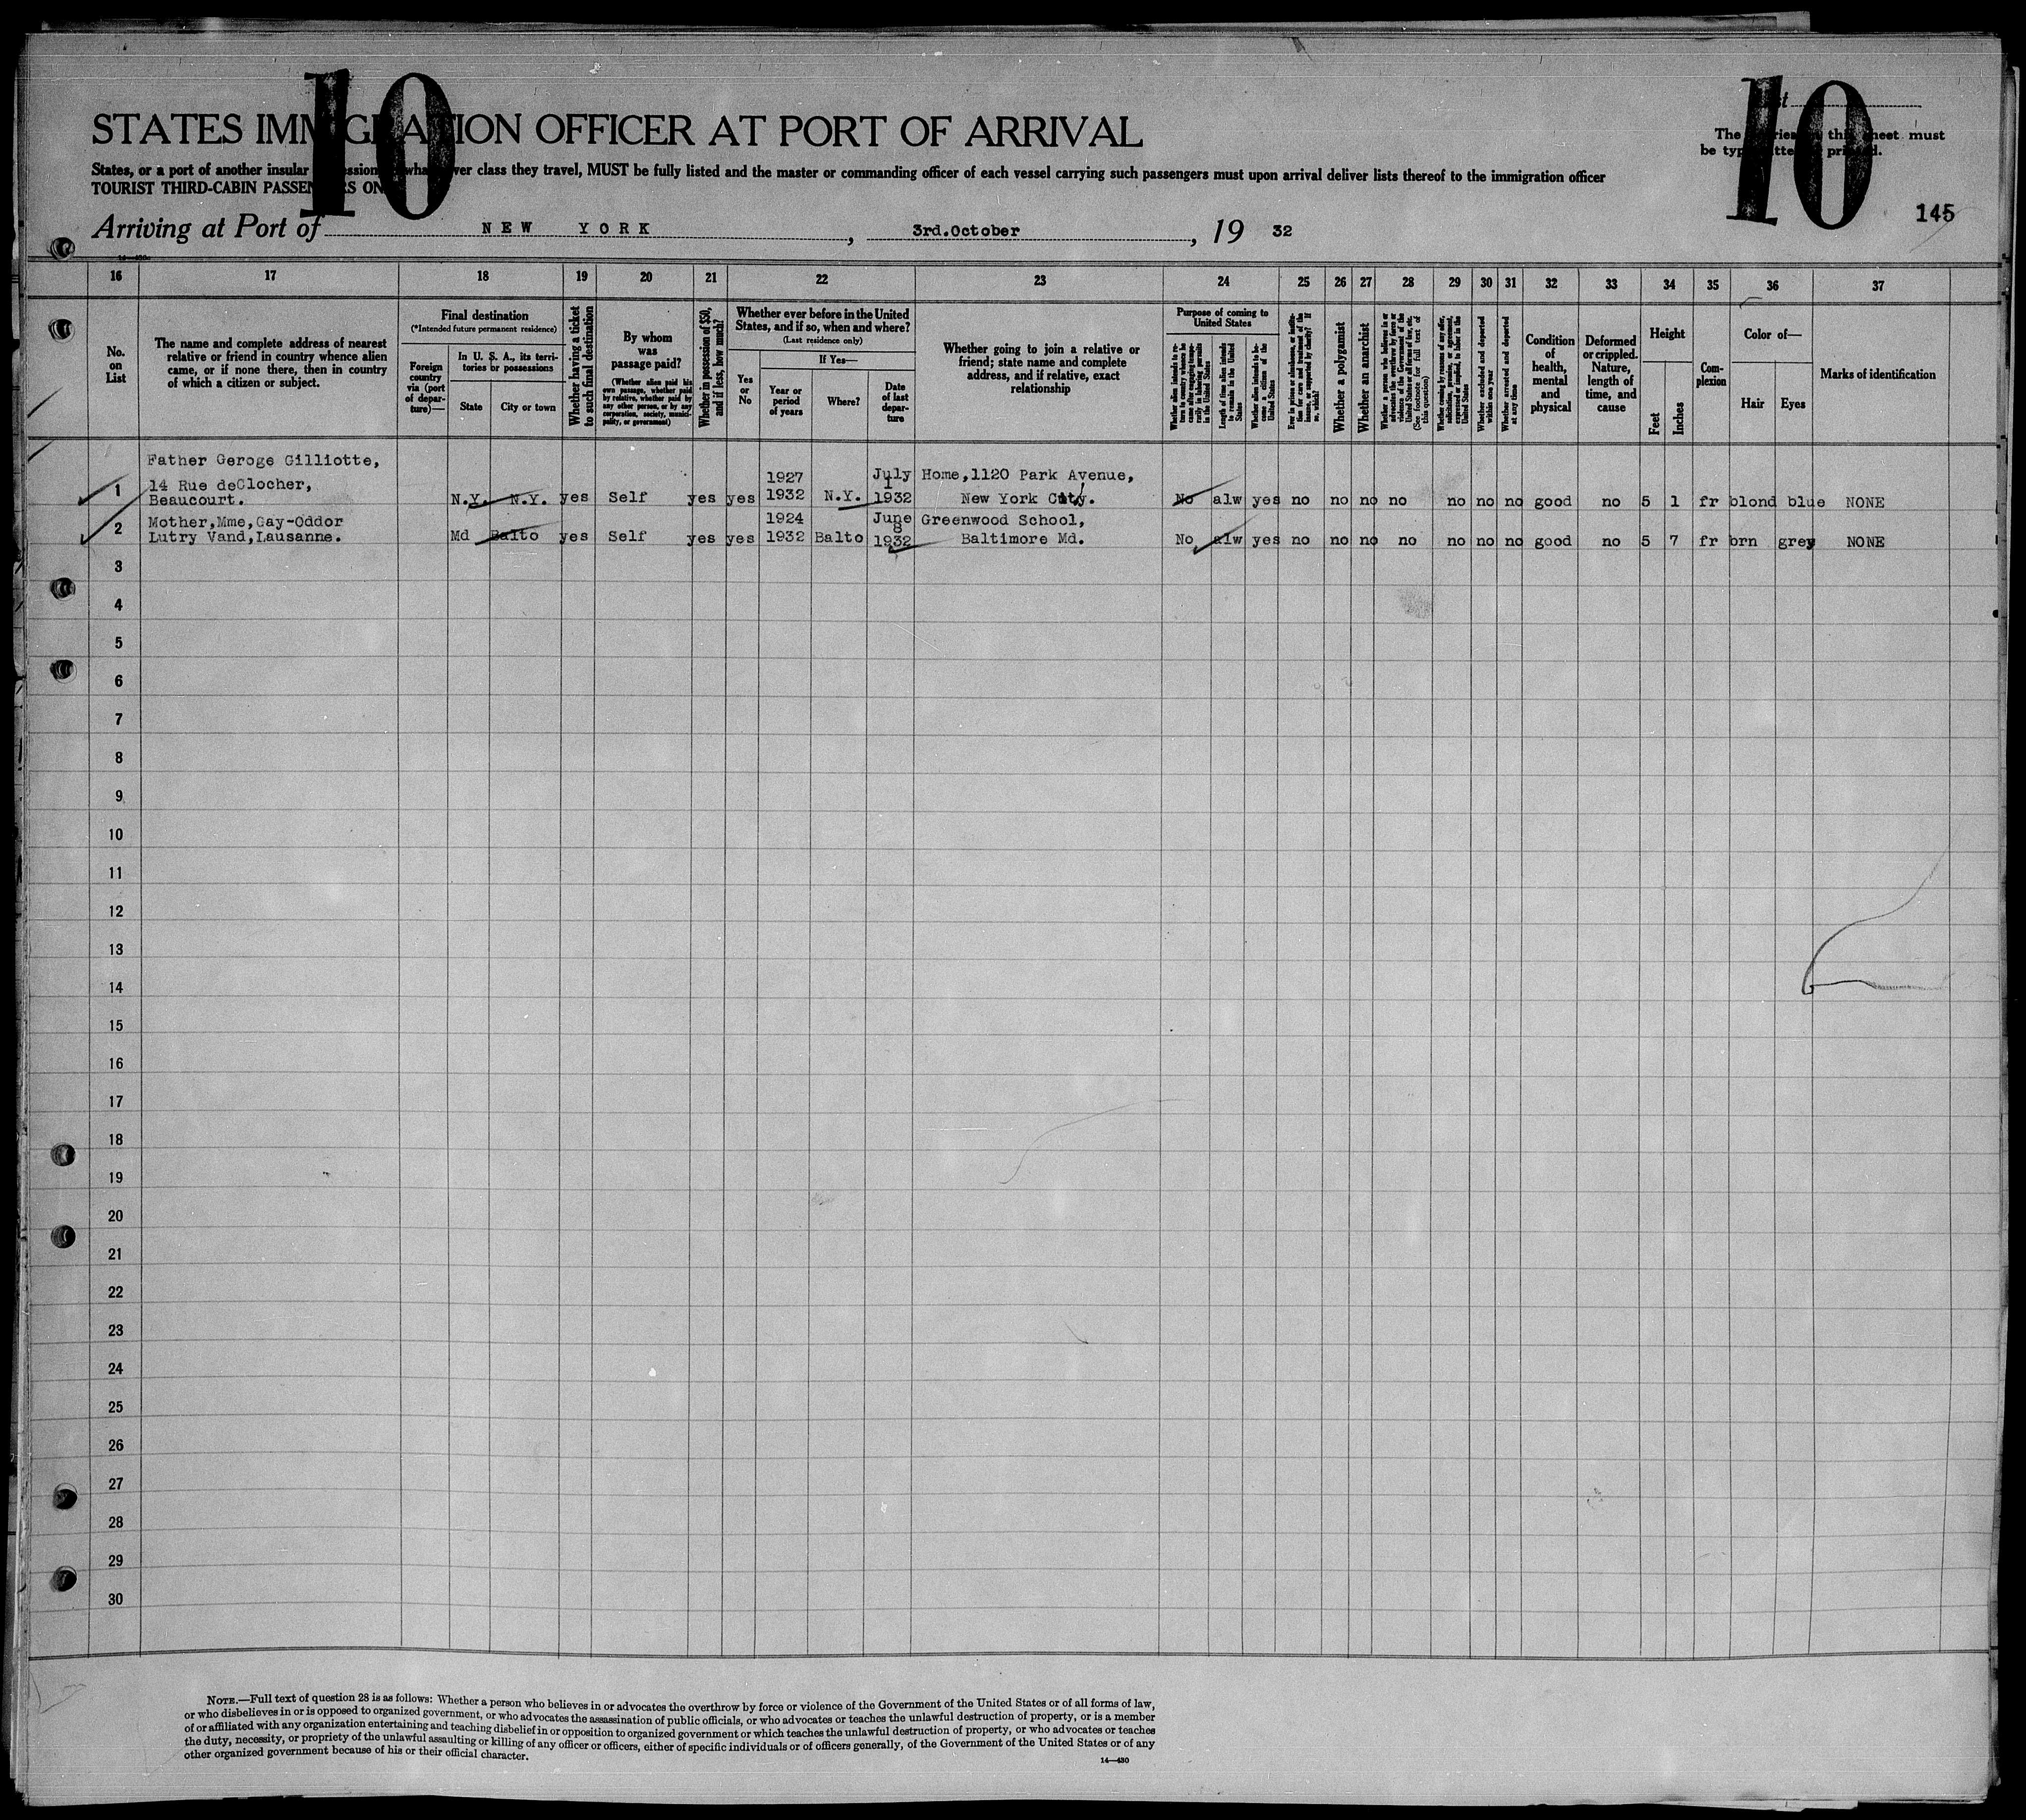 10
10
STATES IMMIGRATION OFFICER AT PORT OF ARRIVAL
The entries on this sheet must
be typewritten or printed.
States, or a port of another insular possession, in whatsoever class they travel, MUST be fully listed and the master or commanding officer of each vessel carrying such passengers must upon arrival deliver lists thereof to the immigration officer
TOURIST THIRD-CABIN PASSENGERS ONLY
145
Arriving at Port of NEW YORK, 3rd.October, 19 32
16 17 18 19 20 21 22 23 24 25 26 27 28 29 30 31 32 33 34 35 36 37
No. on List
The name and complete address of nearest relative or friend in country whence alien came, or if none there, then in country of which a citizen or subject.
Final destination
(*Intended future permanent residence)
Foreign country via (port of departure)—
In U. S. A., its territories or possessions
State
City or town
Whether having a ticket to such final destination
By whom was passage paid?
(Whether alien paid his own passage, whether paid by relative, whether paid by any other person, or by any corporation, society, municipality, or government)
Whether in possession of $50, and if less, how much?
Whether ever before in the United States, and if so, when and where?
(Last residence only)
Yes or No
If Yes—
Year or period of years
Where?
Date of last departure
Whether going to join a relative or friend; state name and complete address, and if relative, exact relationship
Purpose of coming to United States
Length of time alien intends to remain in the United States
Whether alien intends to become a citizen of the United States
Whether a polygamist
Whether an anarchist
Whether excluded and deported within one year
Whether arrested and deported at any time
Condition of health, mental and physical
Deformed or crippled. Nature, length of time, and cause
Height
Feet
Inches
Complexion
Color of—
Hair
Eyes
Marks of identification
Father Geroge Gilliotte,
14 Rue deClocher,
Beaucourt.
1 N.Y. N.Y. yes Self yes yes 1927 1932 N.Y. July 1 1932 Home,1120 Park Avenue, New York City. No alw yes no no no no no no no good no 5 1 fr blond blue NONE
Mother,Mme,Gay-Oddor
Lutry Vand,Lausanne.
2 Md Balto yes Self yes yes 1924 1932 Balto June 8 1932 Greenwood School, Baltimore Md. No alw yes no no no no no no no good no 5 7 fr brn grey NONE
3
4
5
6
7
8
9
10
11
12
13
14
15
16
17
18
19
20
21
22
23
24
25
26
27
28
29
30
NOTE.—Full text of question 28 is as follows: Whether a person who believes in or advocates the overthrow by force or violence of the Government of the United States or of all forms of law,
or who disbelieves in or is opposed to organized government, or who advocates the assassination of public officials, or who advocates or teaches the unlawful destruction of property, or is a member
of or affiliated with any organization entertaining and teaching disbelief in or opposition to organized government or which teaches the unlawful destruction of property, or who advocates or teaches
the duty, necessity, or propriety of the unlawful assaulting or killing of any officer or officers, either of specific individuals or of officers generally, of the Government of the United States or of any
other organized government because of his or their official character.
14—430